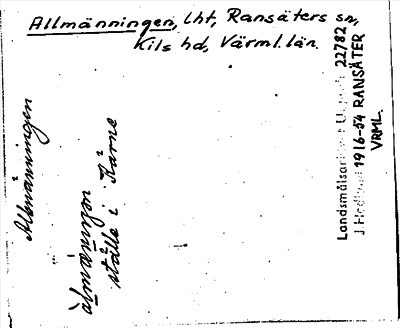 Allmänningen, Lht, Ransäters sn,
Kils hd, Värml. län.
Allmänningen
ställe i Kärne
Landsmålsarkivet Uppsala 22782
J. Hedlund 1916-54 RANSÄTER
VRML.